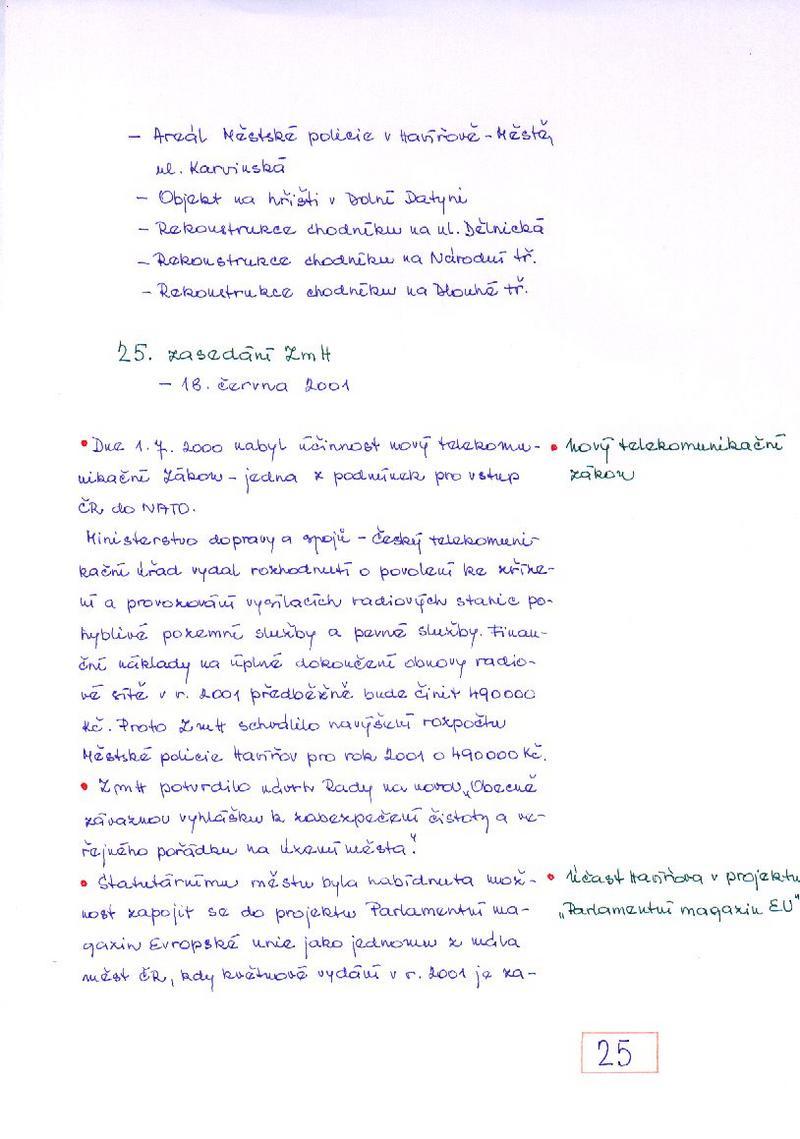 - Areál Městské policie v Havířově-Městě,
ul. Karvinská
- Objekt na hřišti v Dolní Datyni
- Rekonstrukce chodníku na ul. Dělnická
- Rekonstrukce chodníku na Národní tř.
- Rekonstrukce chodníku na Dlouhé tř.
25. zasedání ZmH
- 18. června 2001
• Dne 1.7. 2000 nabyl účinnost nový telekomu-
nikační zákon - jedna z podmínek pro vstup
ČR do NATO.
• nový telekomunikační
zákon
Ministerstvo dopravy a spojů - český telekomuni-
kační úřad vydal rozhodnutí o povolení ke zříze-
ní a provozování vysílacích radiových stanic po-
hyblivé pozemní služby a pevné služby. Finan-
ční náklady na úplné dokončení obnovy radio-
vé sítě v r. 2001 předběžně bude činit 490000
Kč. Proto ZmH schválilo navýšení rozpočtu
Městské policie Havířov pro rok 2001 o 490000 Kč.
• ZmH potvrdilo návrh Rady na novou „Obecně
závaznou vyhlášku k zabezpečení čistoty a ve-
řejného pořádku na území města."
• Statutárnímu městu byla nabídnuta mož-
nost zapojit se do projektu Parlamentní ma-
gazín Evropské unie jako jednomu z mála
měst ČR, kdy květnové vydání v r. 2001 je za-
• Účast Havířova v projektu
„Parlamentní magazín EU"
25